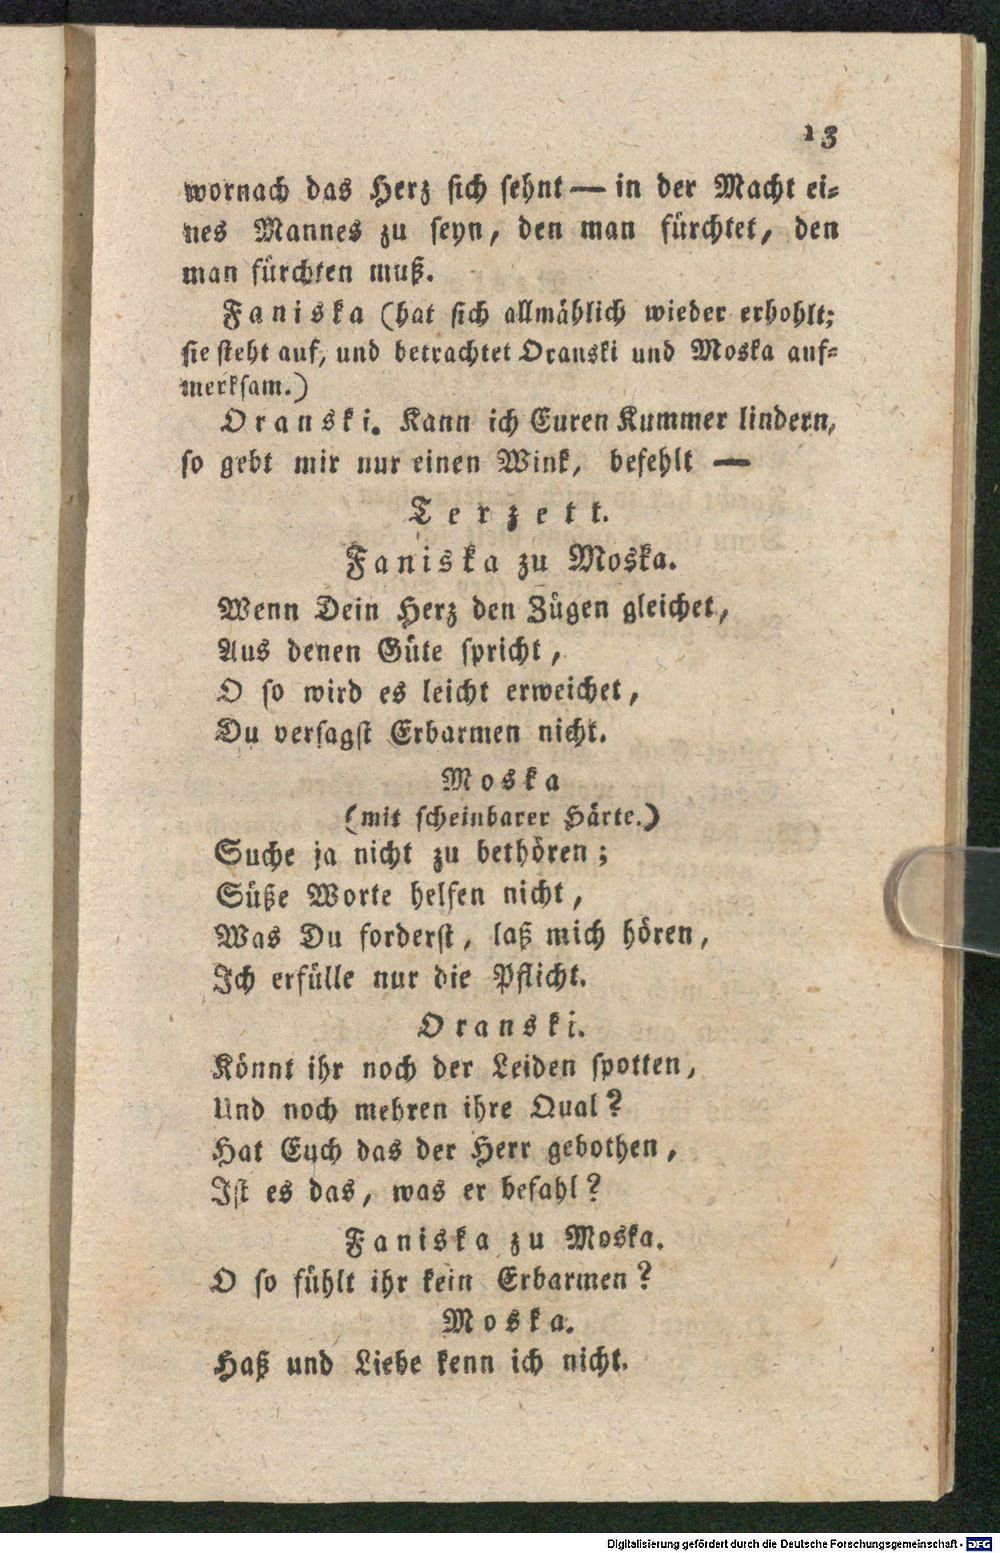 13
wornach das Herz sich sehnt — in der Macht ei⸗
nes Mannes zu seyn, den man fürchtet, den
man fürchten muß.
Faniska (hat sich allmählich wieder erhohlt;
sie steht auf, und betrachtet Oranski und Moska auf⸗
merksam.)
Oranski. Kann ich Euren Kummer lindern,
so gebt mir nur einen Wink, befehlt —
Terzett.
Faniska zu Moska.
Wenn Dein Herz den Zügen gleichet,
Aus denen Güte spricht,
O so wird es leicht erweichet,
Du versagst Erbarmen nicht.
Moska
(mit scheinbarer Härte.)
Suche ja nicht zu bethören;
Süße Worte helfen nicht,
Was Du forderst, laß mich hören,
Ich erfülle nur die Pflicht.
Oranski.
Könnt ihr noch der Leiden spotten,
Und noch mehren ihre Qual?
Hat Euch das der Herr gebothen,
Ist es das, was er befahl?
Faniska zu Moska.
O so fühlt ihr kein Erbarmen?
Moska.
Haß und Liebe kenn ich nicht.
Digitalisierung gefördert durch die Deutsche Forschungsgemeinschaft - DFG